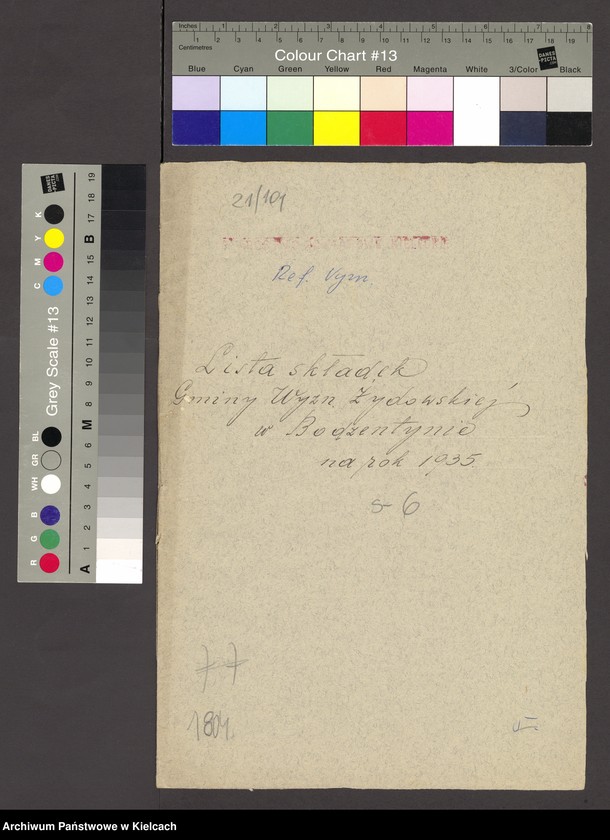 Inches 1 2 3 4 5 6 7 8
Centimetres 1 2 3 4 5 6 7 8 9 10 11 12 13 14 15 16 17 18 19
Colour Chart #13
DANES
-PICTA
.COM
Blue Cyan Green Yellow Red Magenta White 3/Color Black
DANES
-PICTA
.COM
Grey Scale #13
R G B WH GR BL C M Y K
A 1 2 3 4 5 6 M 8 9 10 11 12 13 14 15 B 17 18 19
21/101
Ref. Wym.
Lista składek
Gminy Wyzn. Żydowskiej
w Bodzentynie
na rok 1935.
s- 6
77
1804
Archiwum Państwowe w Kielcach